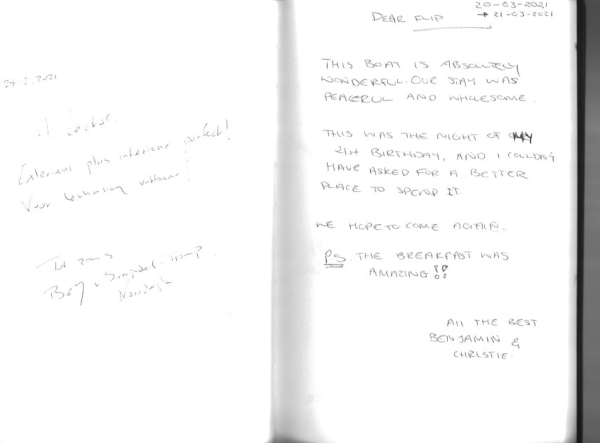 25.2.2021
Exterieur plus interieur perfect!
Voor
Tot
20-03-2021
→ 21-03-2021
DEAR FLIP
THIS BOAT IS ABSOLUTELY
WONDERFUL. OUR STAY WAS
PEACEFUL AND WHOLESOME.
THIS WAS THE NIGHT OF MY
21st BIRTHDAY, AND I COULDN'T
HAVE ASKED FOR A BETTER
PLACE TO SPEND IT
WE HOPE TO COME AGAIN.
PS. THE BREAKFAST WAS
AMAZING!!
All THE BEST
BENJAMIN &
CHRISTIE.